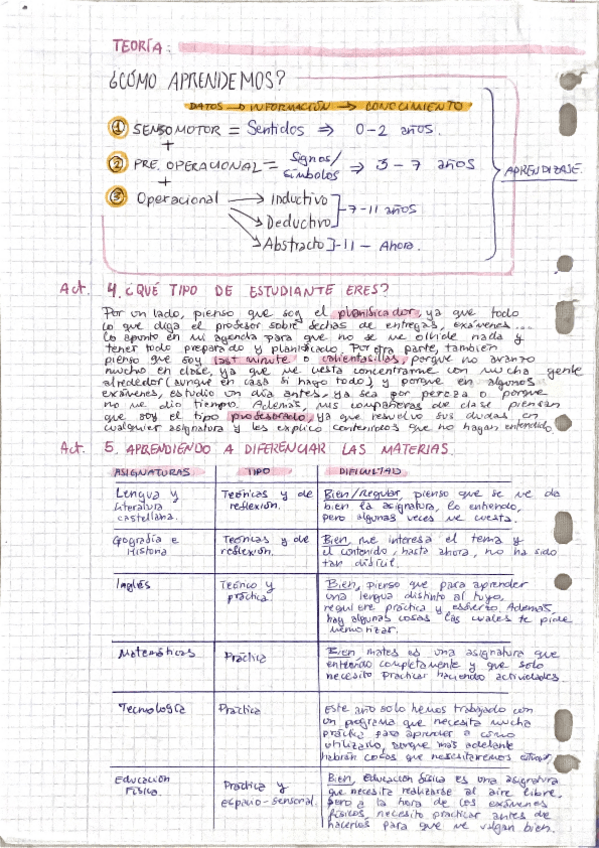 TEORÍA:
¿CÓMO APRENDEMOS?
DATOS → INFORMACIÓN → CONOCIMIENTO
① SENSOMOTOR = Sentidos ⇒ 0-2 años.
+
② PRE. OPERACIONAL = Signos/símbolos ⇒ 3-7 años
+
③ Operacional → Inductivo
→ Deductivo ]-7-11 años
→ Abstracto ]-11 - Ahora.
APRENDIZAJE.
Act. 4. ¿QUÉ TIPO DE ESTUDIANTE ERES?
Por un lado, pienso que soy el planificador, ya que todo
lo que diga el profesor sobre fechas de entregas, exámenes...
lo apunto en mi agenda para que no se me olvide nada y
tener todo preparado y planificado. Por otra parte, también
pienso que soy last minute o calientasillas, porque no avanzo
mucho en clase, ya que me cuesta concentrarme con mucha gente
alrededor (aunque en casa si hago todo) y porque en algunos
exámenes, estudio un día antes, ya sea por pereza o porque
no me dio tiempo. Además, mis compañeras de clase piensan
que soy el tipo profesorado, ya que resuelvo sus dudas en
cualquier asignatura y les explico contenidos que no hagan entendido.
Act. 5. APRENDIENDO A DIFERENCIAR LAS MATERIAS.
ASIGNATURAS TIPO DIFICULTAD
Lengua y Literatura castellana.
Teóricas y de reflexión.
Bien/Regular, pienso que se me da
bien la asignatura, lo entiendo,
pero algunas veces me cuesta.
Geografía e Historia
Teóricas y de reflexión.
Bien, me interesa el tema y
el contenido, hasta ahora, no ha sido
tan difícil.
Inglés
Teórico y práctica.
Bien, pienso que para aprender
una lengua distinto al tuyo,
requiere práctica y esfuerzo. Además,
hay algunas cosas las cuales te pide
memorizar.
Matemáticas
Práctica
Bien, mates es una asignatura que
entiendo completamente y que solo
necesito practicar haciendo actividades.
Tecnología
Práctica
Este año solo hemos trabajado con
un programa que necesita mucha
práctica para aprender a cómo
utilizarlo, porque más adelante
habrán cosas que necesitaremos
Educación Física.
Práctica y espacio-sensorial.
Bien, educación física es una asignatura
que necesita realizarse al aire libre,
pero a la hora de los exámenes
físicos, necesito practicar antes de
hacerlos para que me salgan bien.